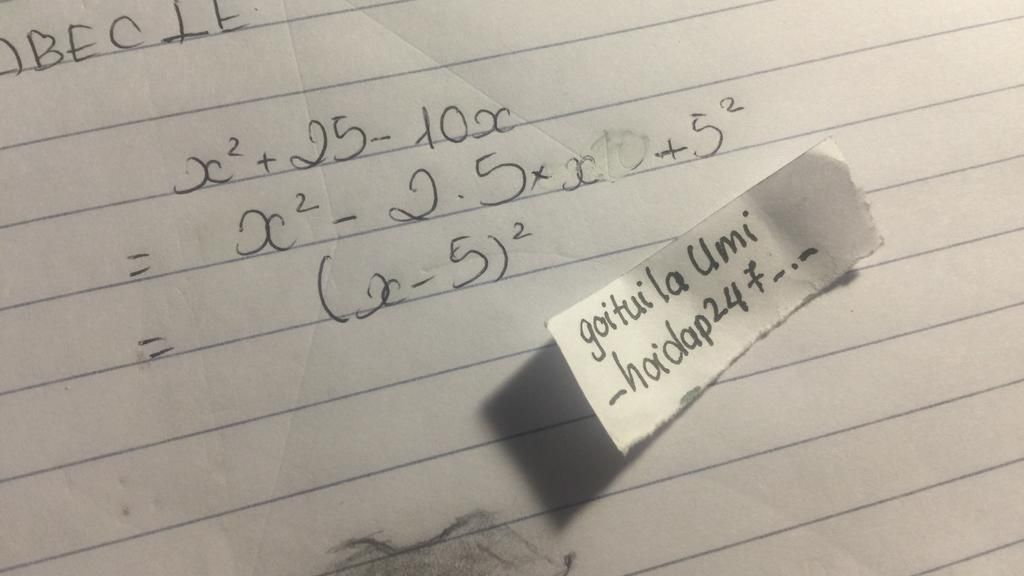 BECLE
x² + 25 - 10x
= x² - 2.5 × x + 5²
= (x - 5)²
goituila Umi
_hoidap247_._